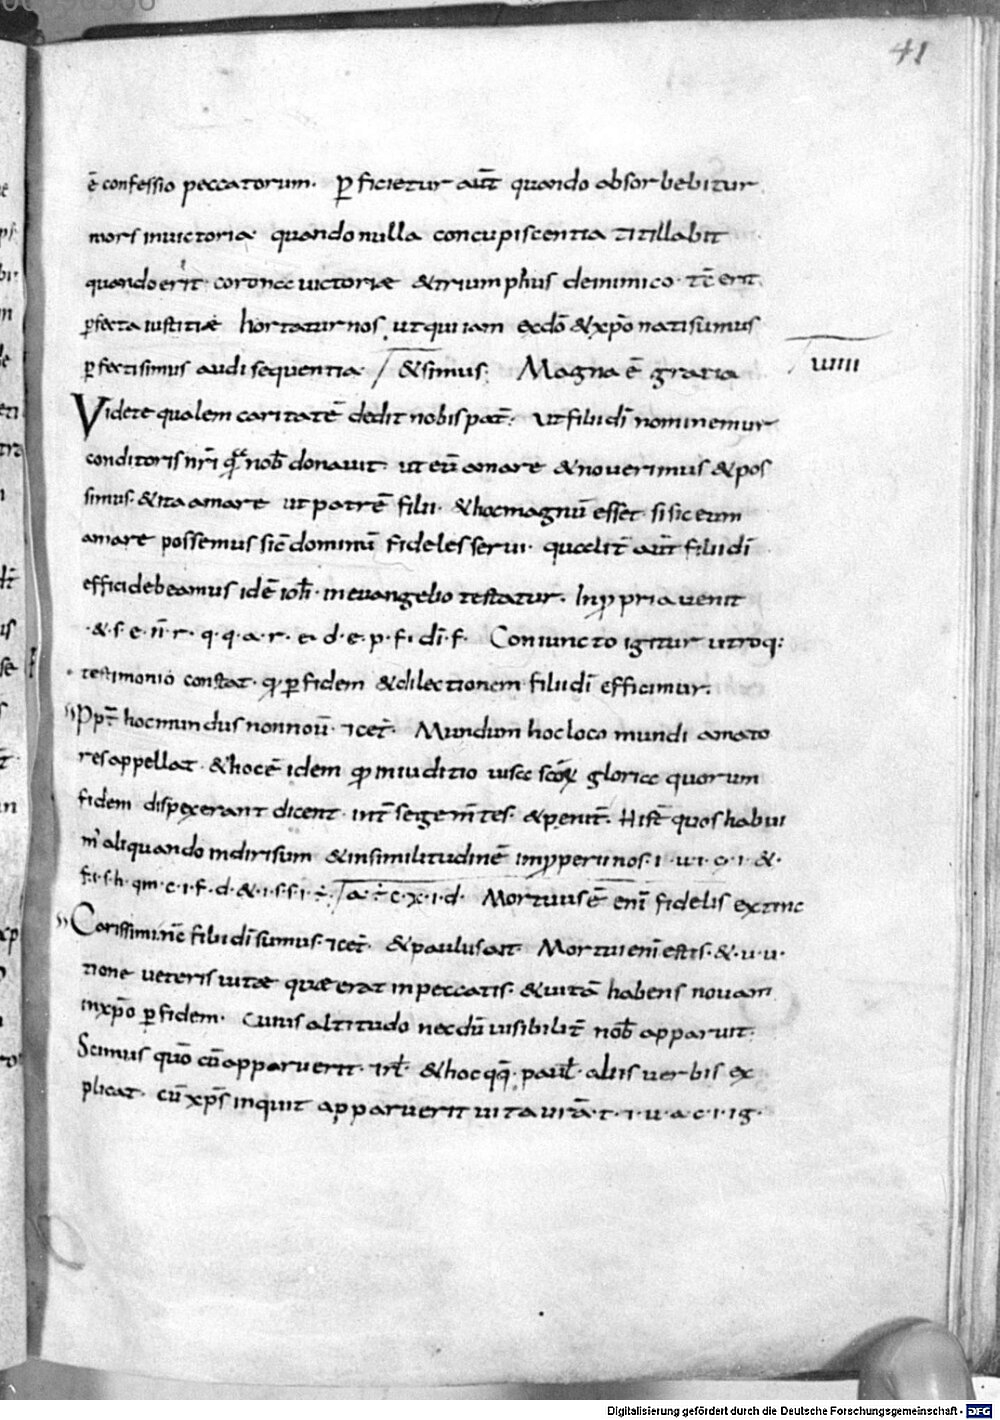 41
ē confessio peccatorum. ꝑficietur aūt quando absorbebitur
mors in uictoria quando nulla concupiscentia titillabit
quando erit corona uictoriae &triumphus de inimico. tc̄ erit
ꝑfecta iustitiae hortatur nos, ut qui iam ex dō & xp̄o nati sumus
ꝑfectisimus audi sequentia / &simus. Magna ē gratia
uiiii
Videte qualem caritatē dedit nobis pat̄. ut filii dī nominemur
conditoris nr̄i nob̄ donauit. ut eū amare & nouerimus & pos
simus. & ita amare ut patrē filii. & hoc magnū esset si sic eum
amare possemus sic̄ dominū fideles serui. qualit̄ aūt filii dī
effici debeamus idē ioh̄. in euangelio testatur. In ꝓpria uenit
.&.s.e.n̄.r.q.q.a.r.e.d.e.p.f.dī.f. Coniuncto igitur utroq:
testimonio constat. ꝑ fidem & dilectionem filii dī efficimur.
Ppt̄ hoc mundus non nou̅. Mundum hoc loco mundi amato
res appellat. & hoc ē idem in iuditio uisa gloria quorum
fidem dispexerant dicent. int̄ se gem̄tes. & penit̄. Hi st̄ quos habui
m̄ aliquando in derisum & in similitudinē inꝓperii nos.i.
Mortuus ē eni̅ fidelis extinc
Carissimi nc̄ filii dī sumus. & paulus ait Mortui eni̅ estis.&.u.u.
tione ueteris uitae quae erat in peccatis. & uitā habens nouam
in xp̄o ꝑ fidem. Cuius altitudo necdū uisibilit̄ nob̄ apparuit.
Scimus quō cū apparuerit. & hoc qq̄. paul̄. aliis uerbis ex
plicat. cū xp̄s inquit apparuerit uita urā.t.i.u.a.c.i.ig.
Digitalisierung gefördert durch die Deutsche Forschungsgemeinschaft - DFG